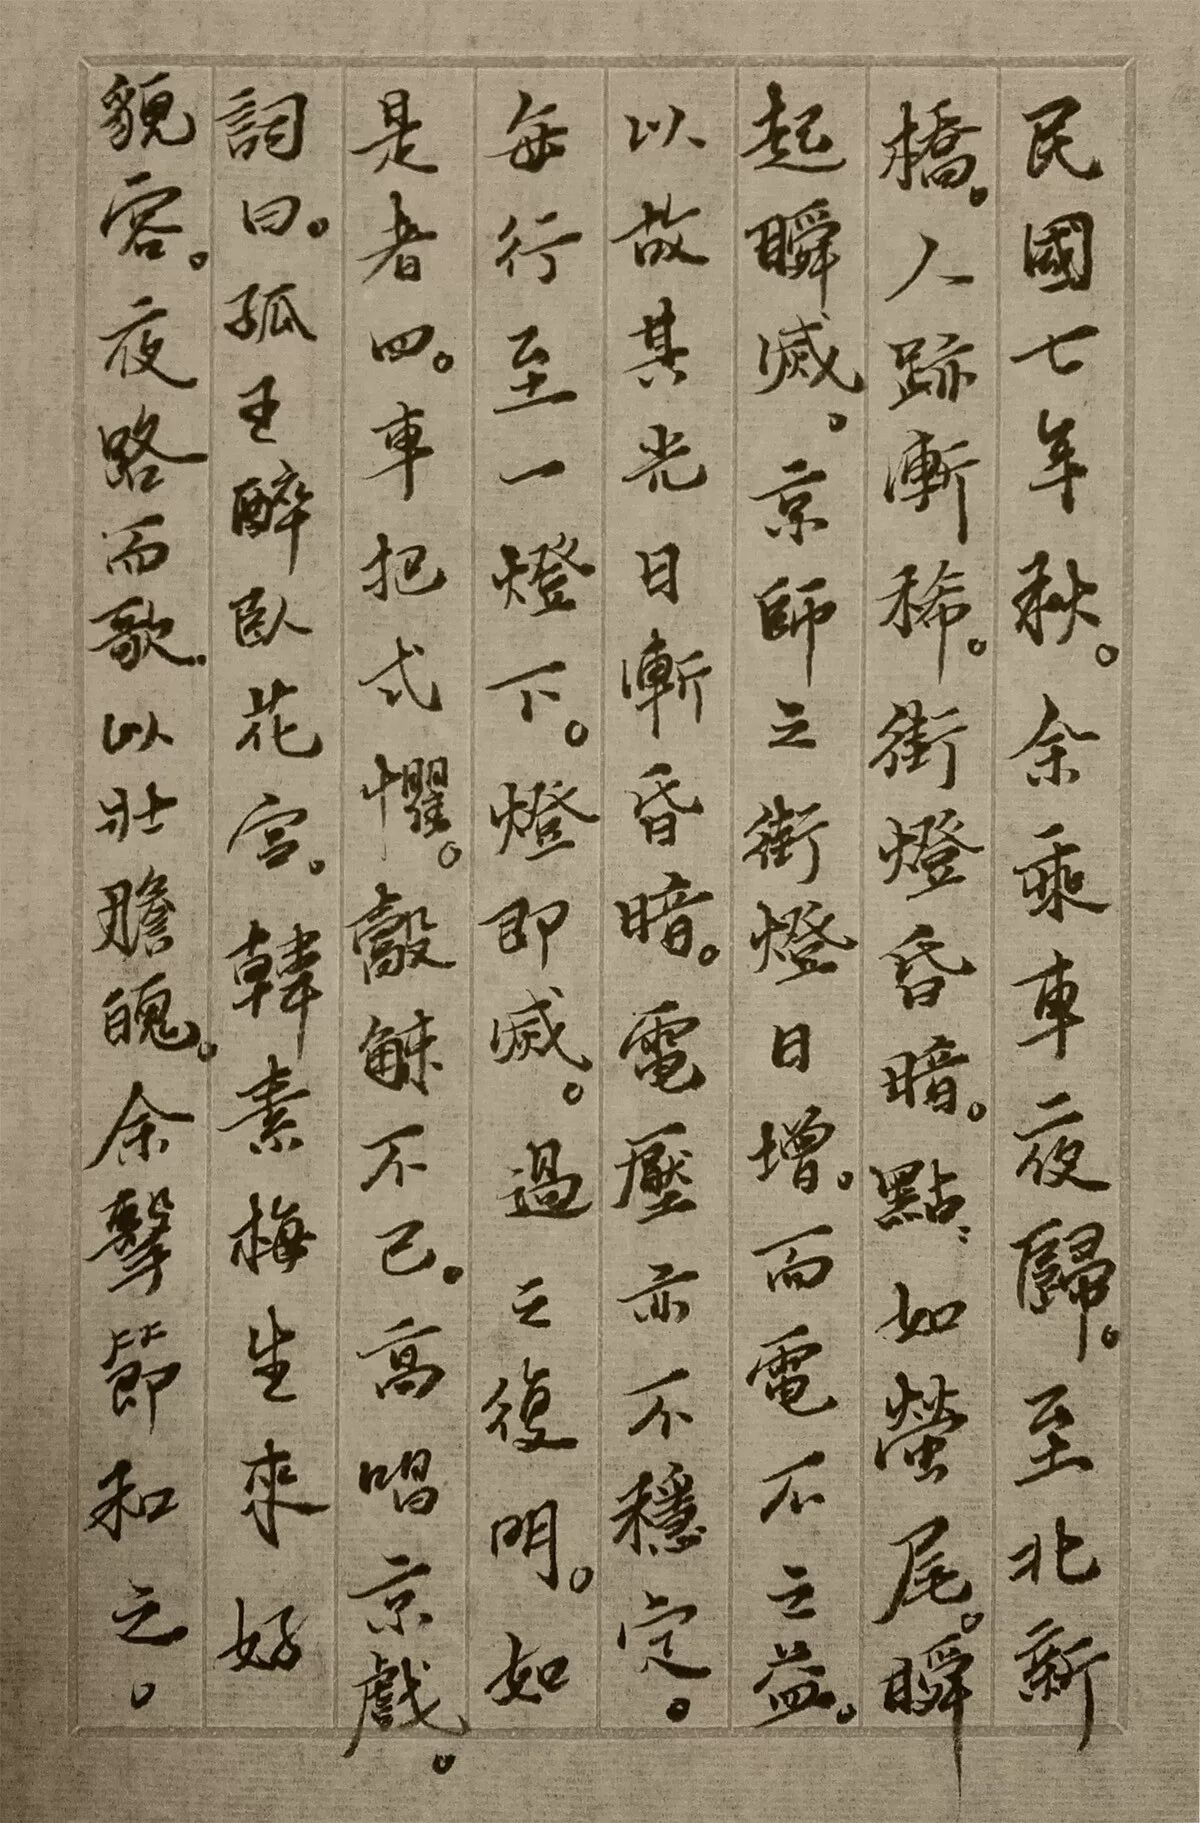 民國七年秋。余乘車夜歸。至北新
橋。人跡漸稀。街燈昏暗。點〻如螢尾。瞬
起瞬滅。京師之街燈日增。而電不之益。
以故其光日漸昏暗。電壓亦不穩定。
每行至一燈下。燈即滅。過之復明。如
是者四。車把式懼。觳觫不已。高唱京戲。
詞曰。孤王醉臥花宮。韓素梅生來好
貌容。夜路而歌。以壯膽魄。余擊節和之。